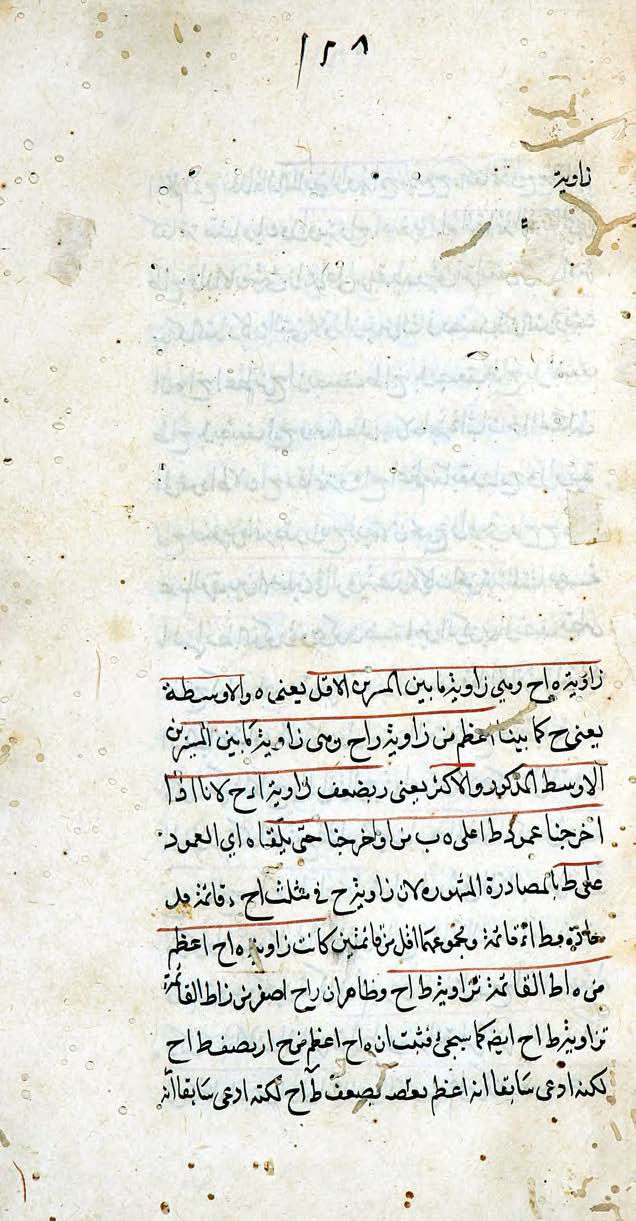 ١٢٨
زاوية
زاوية ه اح وهي زاوية ما بين المسيرين الاقل يعنى ه والاوسط
يعنى ح كما بينا اعظم من زاوية راح وهى زاوية ما بين المسيرين
الاوسط المذكور والاكثر يعنى ر بضعف زاوية ارح لانا اذا
اخرجنا عمود ط اعلى ه ب من ا واخرجنا حتى يلقاه اي العمود
على ط بالمصادرة المشهورة لان زاوية ح في مثلث اح قائمة
حادة قائمة ومجموعهما اقل من قائمتين كانت زاوية ه اح اعظم
من ه اط القائمة بزاوية ط اح وظاهر ان راح اصغر من زاط القائمة
بزاوية ط اح ايضا كما سيجئ فثبت ان ه اح اعظم من ح ار بضعف ط اح
لكنه ادعى سابقا انه اعظم بضعف ط اح لكنه ادعى سابقا انه